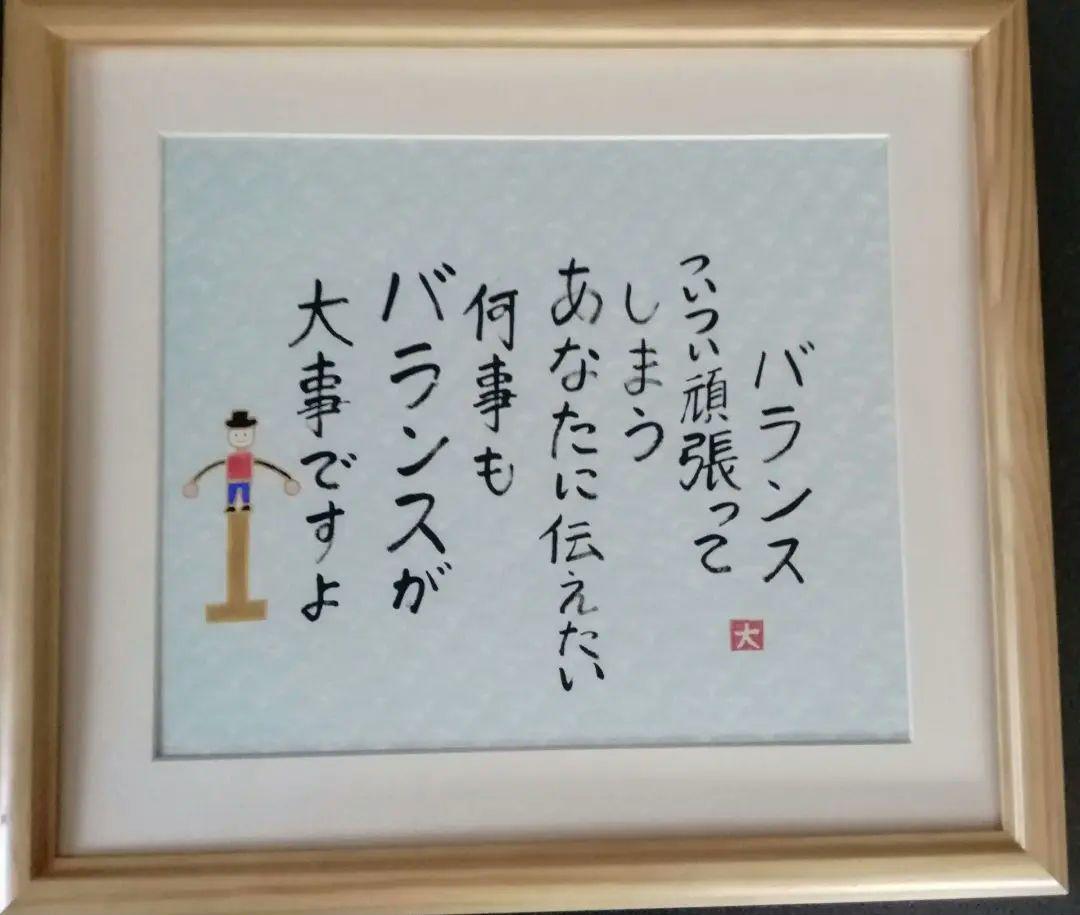 バランス
ついつい頑張って
しまう
あなたに伝えたい
何事も
バランスが
大事ですよ
大